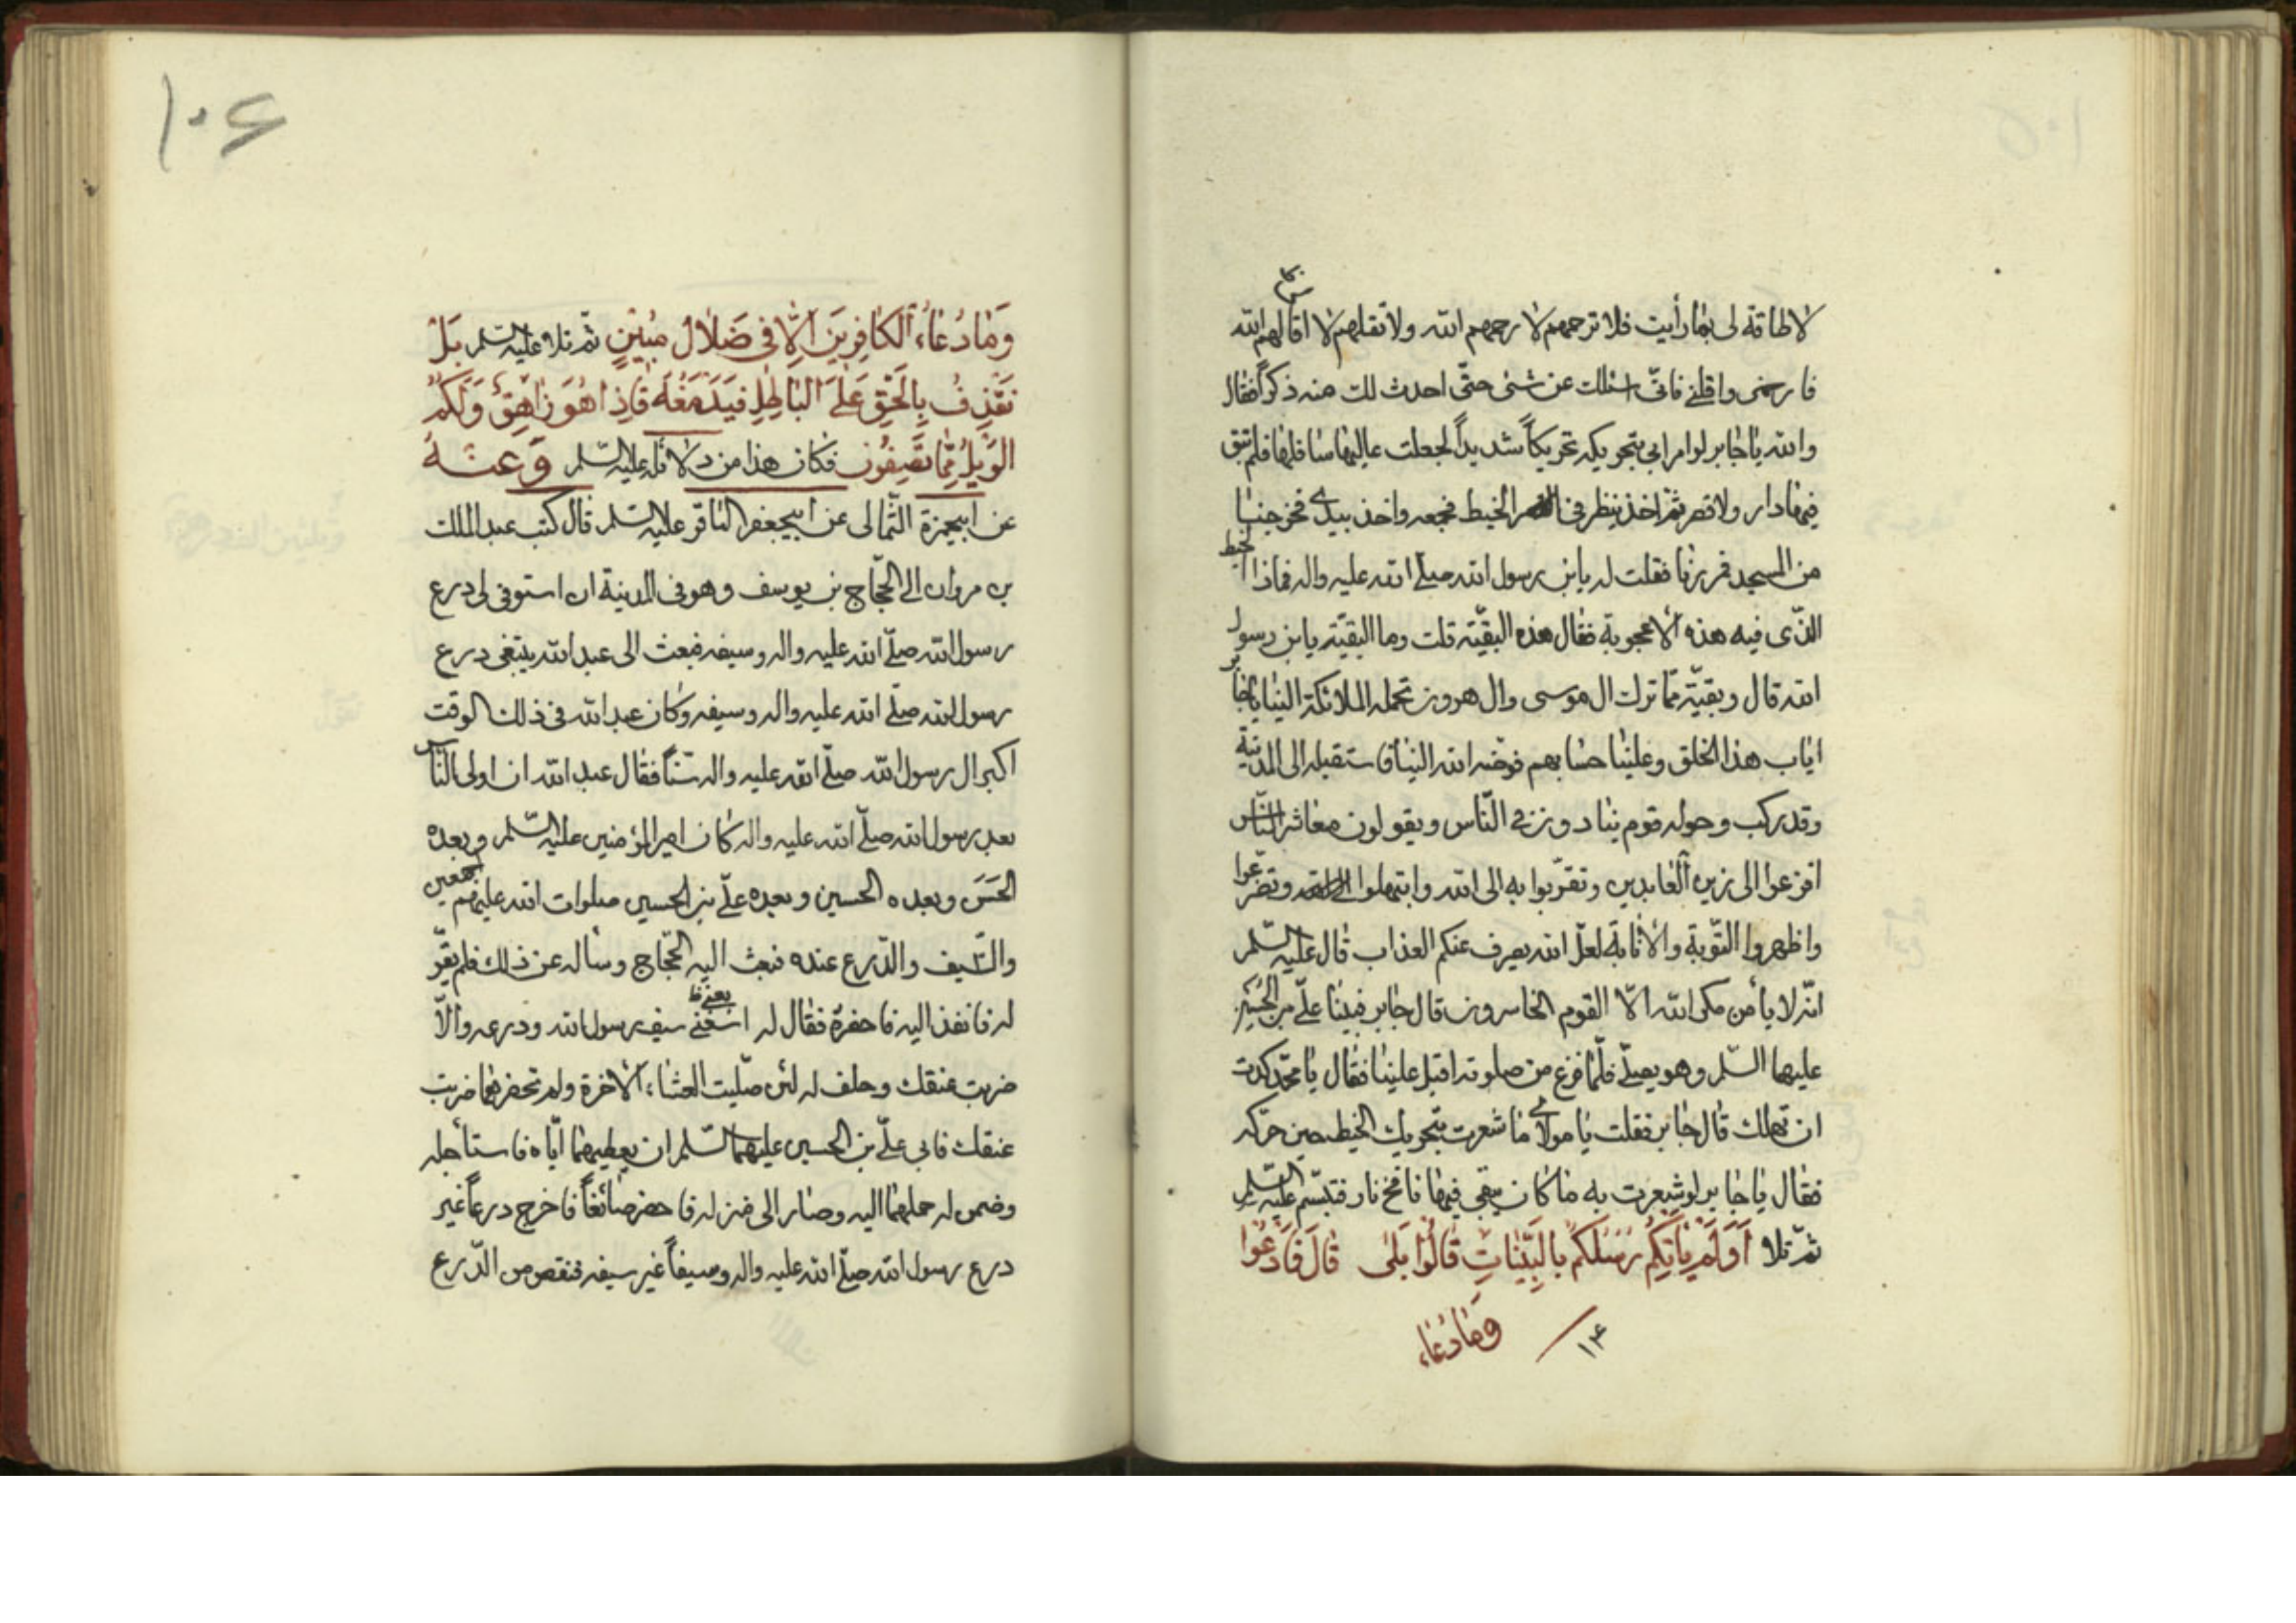 لا طاقة لى بما رأيت فلا ترحمهم لا رحمهم الله ولا تقلهم لا اقالهم الله
فارحمنى واقلنى فانى اسئلك عن شئ حتّى احدث لك منه ذكراً فقال
والله يا جابر لو امرابى بتحريكه تحريكاً شديداً لجعلت عاليها سافلها فلم تبق
فيها دار ولا قصر ثمّ اخذ ينظر فى الخيط فجمعه واخذ بيدى فخرجنا
من المسجد فررنا فقلت له يابن رسول الله صلّى الله عليه واله فماذا الخيط
الذّى فيه هذه الاعجوبة فقال هذه البقيّة قلت وما البقيّة يابن رسول
الله قال وبقيّة ممّا ترك ال موسى وال هرون تحمله الملائكة الينا يا جابر
اياب هذا الخلق وعلينا حسابهم فوّضه الله الينا فاستقبله الى المدينة
وقد ركب وحوله قوم ينادون فى النّاس ويقولون معاشر النّاس
افزعوا الى زين العابدين وتقرّبوا به الى الله وابتهلوا وتضرّعوا
واظهروا التّوبة والانابة لعلّ الله يصرف عنكم العذاب قال عليه السّلم
انّه لا يأمن مكر الله الاّ القوم الخاسرون قال جابر فبينا علىّ بن الحسين
عليهما السّلم وهو يصلّى فلمّا فرغ من صلوته اقبل علينا فقال يا محمّد كدت
ان تهلك قال جابر فقلت يا مولاى ما شعرت بتحريك الخيط حين حرّكه
فقال يا جابر لو شعرت به ما كان يبقى فيها نافخ نار فتبسّم عليه السّلم
ثمّ تلا اَوَلَم يَاتِكُم رُسُلكُم بِالبَيِّنَاتِ قَالُوا بَلى قَالَ فَادعُوا
١٤ وَمَا دُعَاء
١٠٤
وَمَا دُعَاءُ الكَافِرِينَ اِلّا فِى ضَلالٍ مُبِين ثمّ تلا عليه السّلم بَل
نَقذِفُ بِالحَقِّ عَلَى البَاطِلِ فَيَدمَغُهُ فَاِذَا هُوَ زَاهِقٌ وَلَكُمُ
الوَيلُ مِمَّا تَصِفُون فكان هذا من دلائله عليه السّلم وعنه
عن ابيحمزة الثّمالى عن ابيجعفر الباقر عليه السّلم قال كتب عبد الملك
بن مروان الى الحّجاج بن يوسف وهو فى المدينة ان استوفى لى درع
رسول الله صلّى الله عليه واله وسيفه فبعث الى عبد الله يبتغى درع
رسول الله صلّى الله عليه واله وسيفه وكان عبد الله فى ذلك الوقت
اكبر ال رسول الله صلّى الله عليه واله سنّاً فقال عبد الله ان اولى النّاس
بعد رسول الله صلّى الله عليه واله كان امير المؤمنين عليه السّلم وبعده
الحسن وبعده الحسين وبعده علىّ بن الحسين صلوات الله عليهم اجمعين
والسّيف والدّرع عنده فبعث اليه الحّجاج وسأله عن ذلك فلم يقرّ
له فانفذ اليه فاحضره فقال له سيف رسول الله ودرعه والاّ
ضربت عنقك وحلف له لئن صلّيت العشاء الاخرة ولم تحضرهما ضربت
عنقك فابى علىّ بن الحسين عليهما السّلم ان يعطيهما ايّاه فاستأجله
وضمن له حملهما اليه وصار الى منزله فاحضر صائغاً فاخرج درعاً غير
درع رسول الله صلّى الله عليه واله وسيفاً غير سيفه فنقص من الدّرع